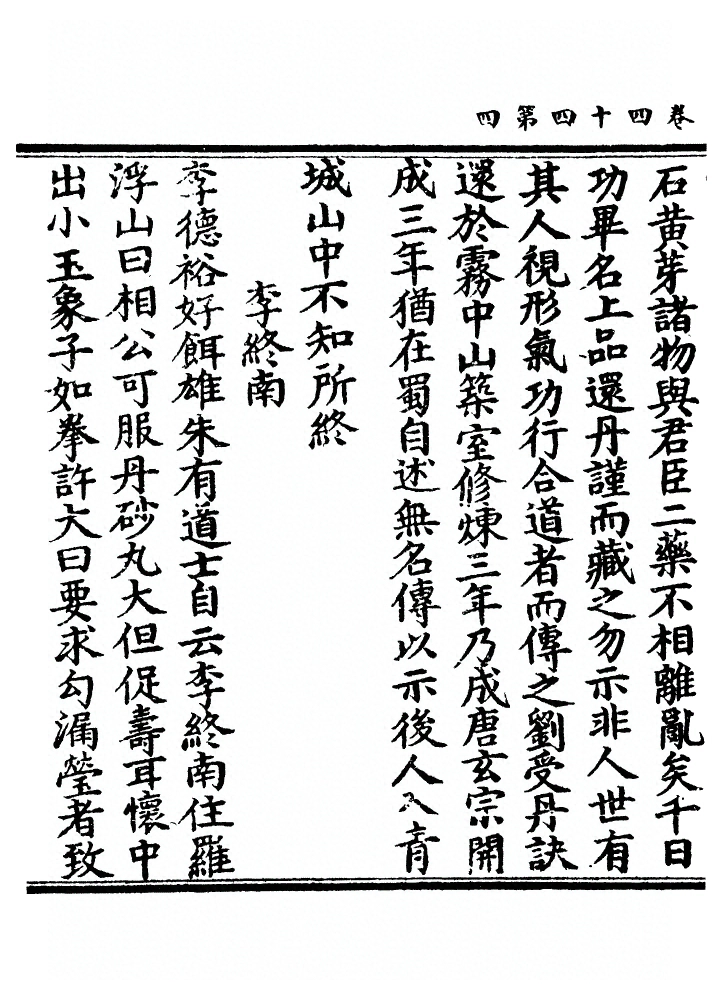 卷四十四第四
石黄芽諸物與君臣二藥不相離亂矣千日
功畢名上品還丹謹而藏之勿示非人世有
其人視形氣功行合道者而傳之劉受丹訣
還於霧中山築室修煉三年乃成唐玄宗開
成三年猶在蜀自述無名傳以示後人入青
城山中不知所終
李終南
李德裕好餌雄朱有道士自云李終南住羅
浮山曰相公可服丹砂丸大但促壽耳懷中
出小玉象子如拳許大曰要求勾漏瑩者致